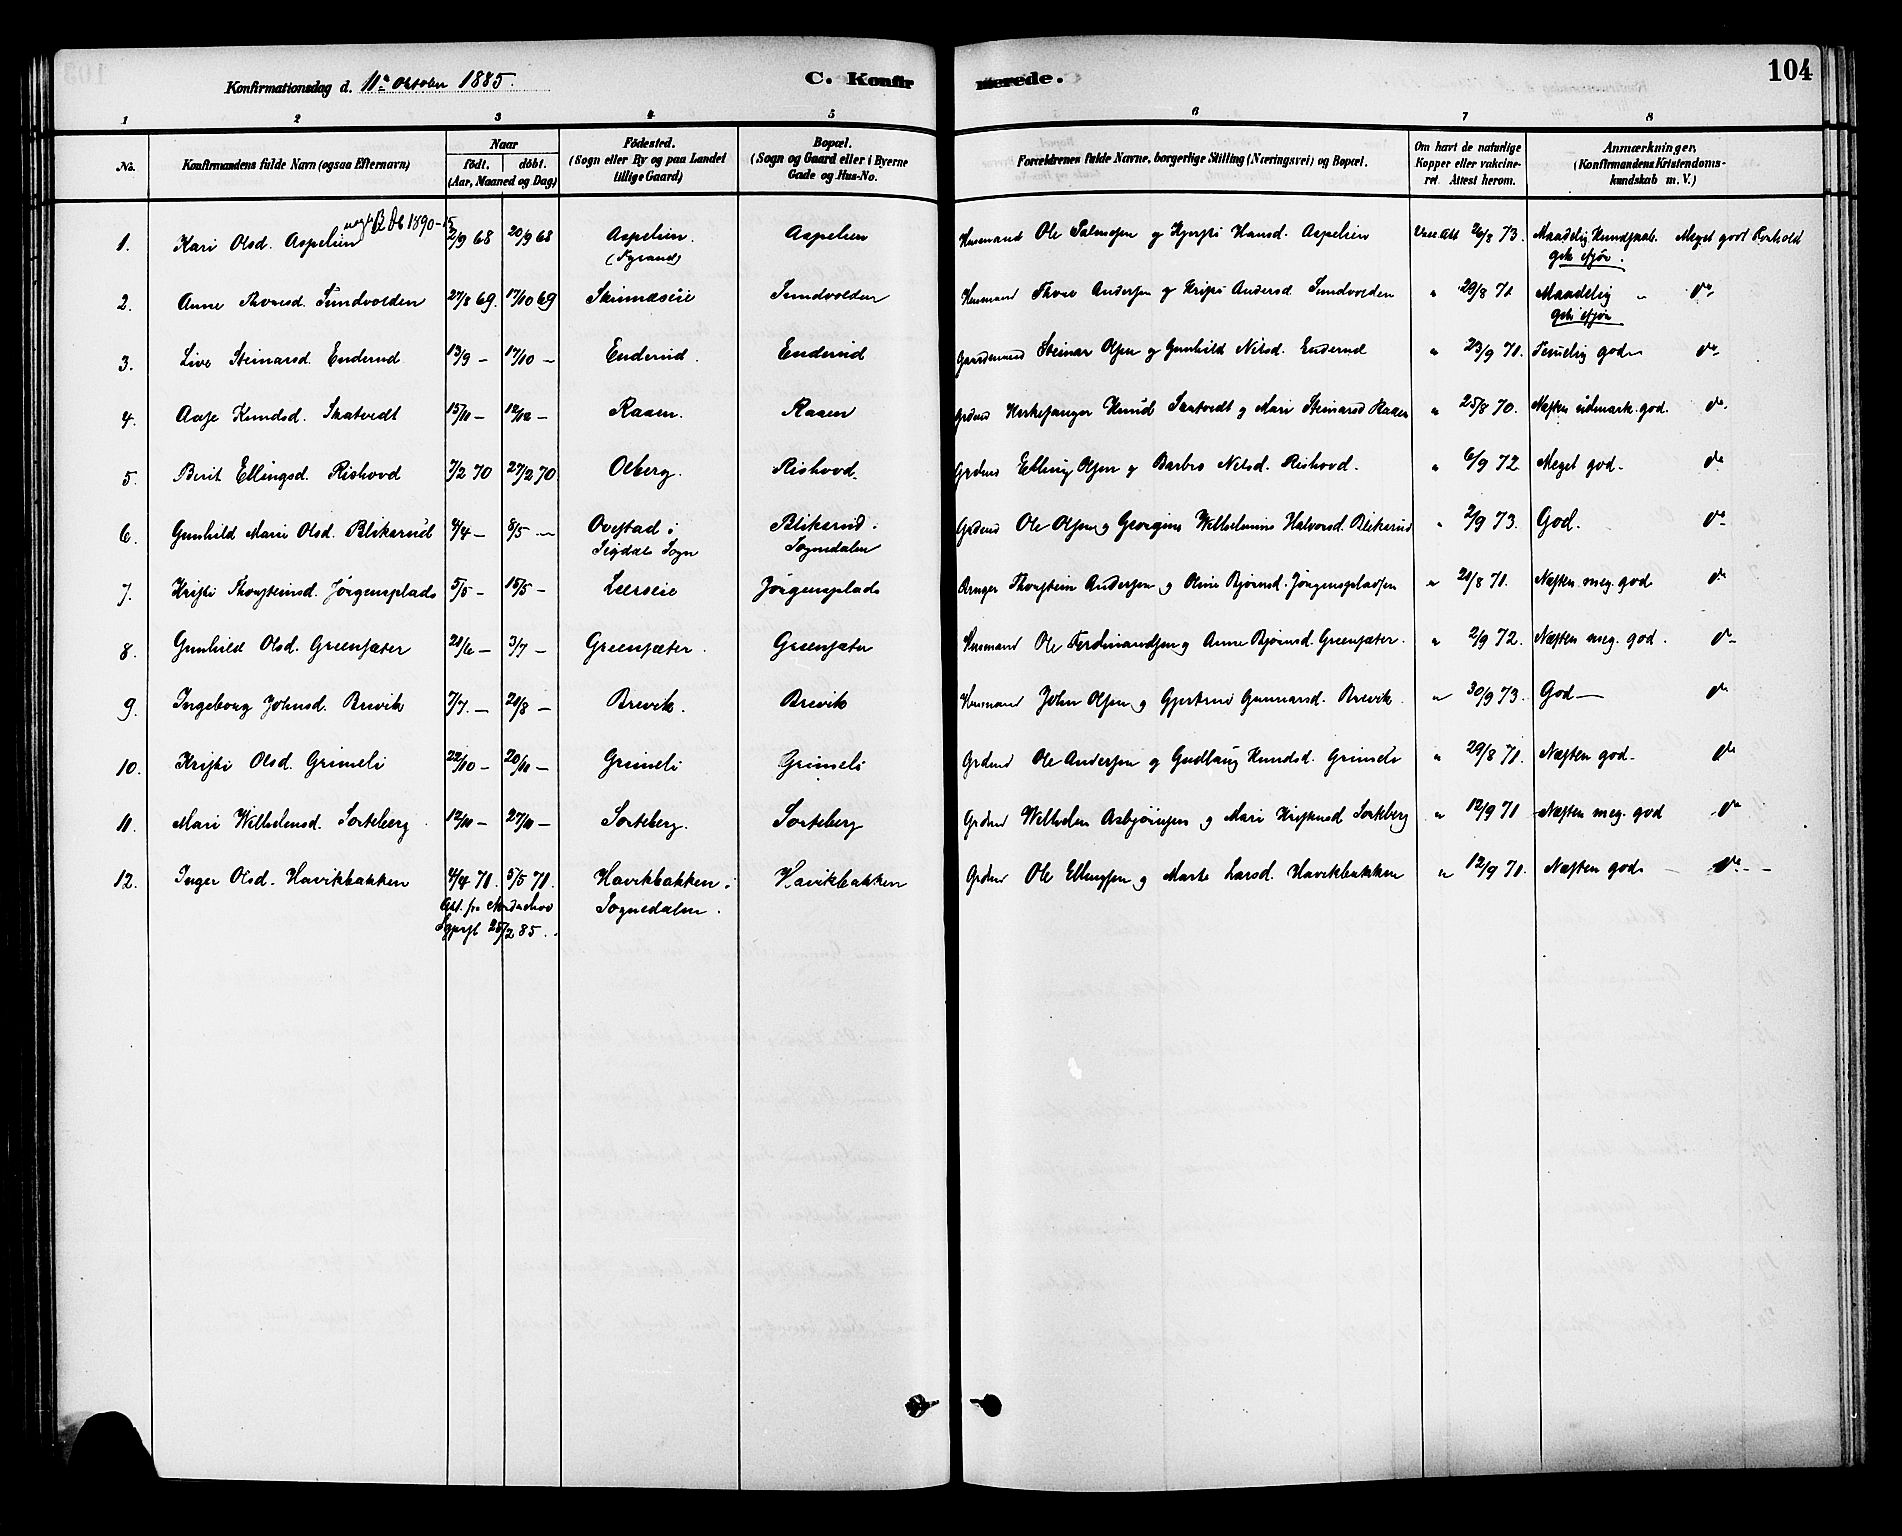 Konfirmationsdag d. 11te Oktober 1885.
C. Konfirmerede.
104
1 2 3 4 5 6 7 8
No. Konfirmandens fulde Navn (ogsaa Efternavn) Naar födt. döbt. (Aar, Maaned og Dag) Födested. (Sogn eller By og paa Landet tillige Gaard) Bopæl. (Sogn og Gaard eller i Byerne Gade og Hus-No. Forældrenes fulde Navne, borgerlige Stilling (Næringsvei) og Bopæl. Om havt de naturlige Kopper eller vakcineret. Attest herom. Anmærkninger. (Konfirmandens Kristendomskundskab m. V.)
1. Kari Olsd. Aspelien 1890 2/9 68 20/9 68 Aspelien. Aspelien Husmand Ole Hansd. Aspelien Vacc Att 26/8 73. Maadelig Kundskab. Meget god Forhold
2. Anne Thorsd. Sundvolden 27/8 69. 17/10 69 Skinnæseie Sundvolden Husmand Thore Andersen og Andersd. Sundvolden " 29/8 71. Maadelig " do
3. Live Steinarsd. Enderud 13/9 – 17/10 – Enderud. Enderud Gaardmand Steinar Olsen og Gunhild Nilsd. Enderud " 23/9 71. Temelig god do
4. Aase Knudsd. Skatvedt 15/11 – 12/12 – Raaen. Raaen Grdmd Kirkesanger Knud Skatvedt og Mari Steinarsd Raaen " 25/8 70. Næsten udmærk. god. do
5. Berit Ellingsd. Rishovd 7/2 70 27/2 70 Olberg. Rishovd Grdmd Elling Olsen og Barbro Nilsd. Rishovd. " 6/9 72 Meget god do
6. Gunhild Mari Olsd. Blikerud 4/4 – 8/5 – Ovestad i Sigdals Sogn Blikerud. Sognedalen Grdmd Ole Olsen og Georgine Wilhelmine Halvorsd. Blikerud " 2/9 73. God. do
7. Kristi Thorsteinsd. Jörgensplads 5/5 – 15/5 – Leerseie Jörgensplads Thorstein Andersen og Oline Bjørnsd. Jörgenspladsen " 21/8 71. Næsten meg. god do
8. Gunhild Olsd. Greensæter 21/6 – 3/7 – Greensæter. Greensæter Husmand Ole Ferdinandsen og Anne Bjørnsd. Greensæter. " 2/9 72. Næsten meg. god. do
9. Ingeborg Johnsd. Brevik 7/7. – 21/8 – Brevik. Brevik Husmand John Olsen og Gjertrud Gunnarsd. Brevik. " 30/9 73. God – do
10. Kristi Olsd. Grimeli 22/10 – 20/11 – Grimeli Grimeli Grdmd Ole Andersen og Gudlaug Knudsd. Grimeli " 29/8 71. Næsten god do
11. Mari Wilhelmsd. Sorteberg 12/11 – 27/11 – Sorteberg. Sorteberg Grdmd Wilhelm Asbjörnsen og Mari Kristensd Sorteberg " 12/9 71 Næsten meg. god do
12. Inger Olsd. Havikbakken 4/4 71. 5/5 71. Havikbakken i Sognedalen. Havikbakken Grdmd Ole Ellingsen og Marte Larsd. Havikbakken " 12/9 71. Næsten god do
Att. fra Norderhov
25/2 85.